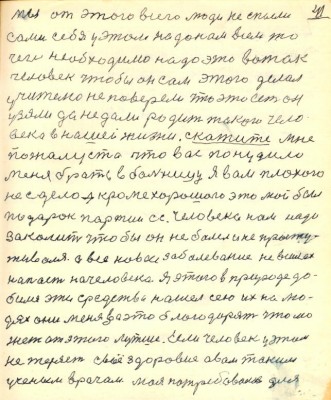 41
от этого всего люди не спыли
сами себя у этом надо нам всем то
чего необходимо надо это вот так
человек чтобы он сам этого делал
учитено не поверем то это сет он
узяли да не дали родит такого чело-
века в нашей жизни. скажите мне
пожалуста что вас понудило
меня брать в больницу Я вам плохого
не сделал кроме хорошого это мой был
подарок партии сс. Человека нам надо
закалить чтобы он не болел и не просту-
живался. а все новое заболевание не
напасть на человека Я этого в природе до-
бился эти средства нашел сею их на лю-
дях они меня за это благодарят что мо
жет от этого лутше. Если человек у этом
не теряет своё здоровие а вам таким
ученым врачам моя потребовалась для